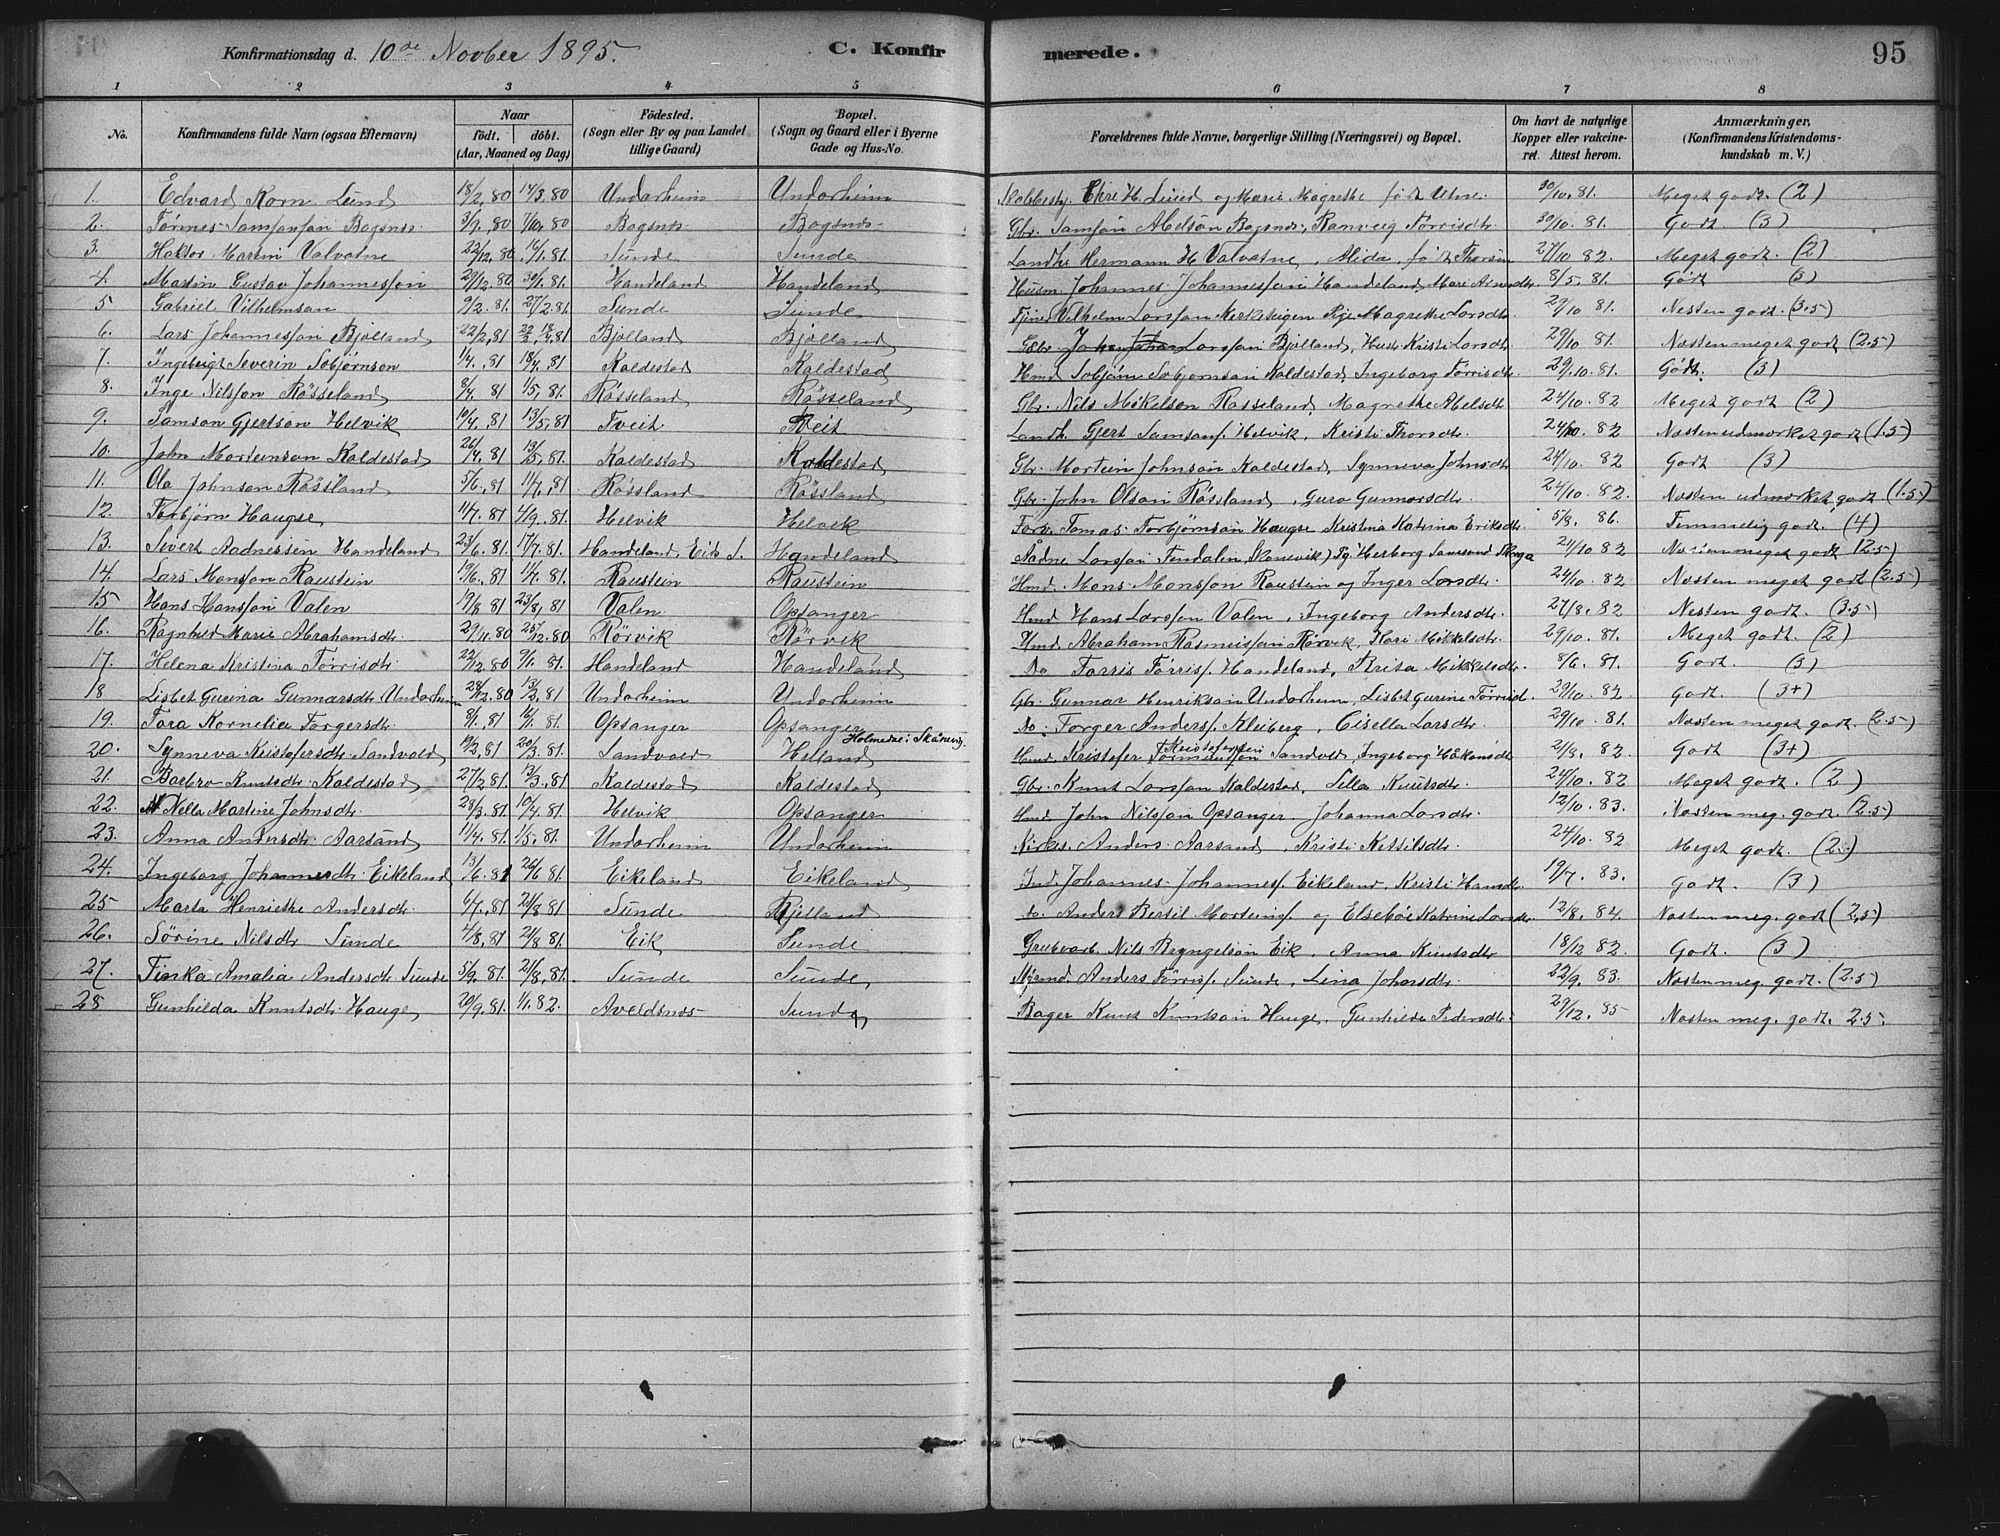 Konfirmationsdag d. 10de Novber 1895. C. Konfirmerede. 95
1 2 3 4 5 6 7 8
No. Konfirmandens fulde Navn (ogsaa Efternavn) Naar födt. döbt. (Aar, Maaned og Dag) Födested. (Sogn eller By og paa Landet tillige Gaard) Bopæl. (Sogn og Gaard eller i Byerne Gade og Hus-No. Forældrenes fulde Navne, borgerlige Stilling (Næringsvei) og Bopæl. Om havt de naturlige Kopper eller vakcineret. Attest herom. Anmærkninger, (Konfirmandens Kristendomskundskab m. V.)
1. Edvard Korn Lund 18/2,80 14/3.80 Undarheim Undarheim H. Lund og Marie Magrethe föd Utne. 30/10.81. Meget godt. (2)
2. Tørmes Samsonson Bogsnes 3/9,80 7/10,80 Bogsnes Bogsnes Gbr. Samson Abelson Bogsnes, Ranveig Tørrisdtr 30/10.81. Godt. (3)
3. Haktor Martin Valvatne 22/12,80 16/1.81. Sunde Sunde Landh. Hermann H. Valvatne, Alida föd Thorsen 27/10 82 Meget godt (2)
4. Martin Gustav Johannesson 29/12.80 30/1.81. Handeland Handeland Husm. Johannes Johannesson Handeland, Mari 8/5.81. Godt (3)
5 Gabriel Vilhelmsen 9/2.81. 27/2.81. Sunde Sunde Vilhelm Larsson Magrethe Larsdtr. 29/10 81. Nesten godt. (3.5)
6. Lars Johannesson Bjölland 22/2,81 Bjölland Bjölland Gbr. Larsson Bjölland, Hust. Kristi Larsdtr. 29/10 81. Nesten meget godt (2.5)
7. Ingebrigt Severin Sobjørnson 1/4.,81 18/4,81 Kaldestad Kaldestad Hmd Sobjörn Sobjornson Kaldestad, Ingeborg Tørrisdtr. 29/10.81. Godt. (3)
8. Inge Nilsson Røsseland 8/4.81 1/5,81. Røsseland Røsseland Gbr. Nils Mikelson Rosseland, Magrethe Abelsdtr 24/10.82 Meget godt (2)
9. Samson Gjertson Helvik 10/4,81 13/5,81 Tveit Tveit Landh. Gjert Samsons. Helvik, Kristi Thorsdtr. 24/10.82 Nesten udmerket godt (1.5)
10. John Morteinson Kaldestad 26/4.81 13/5,81. Kaldestad Kaldestad Gbr. Mortein Johnson Kaldestad, Synneva Johnsdtr 24/10.82 Godt (3)
11. Ola Johnson Røssland 5/6,81 11/7,81 Røssland Røssland Gbr. John Olson Røssland, Guro Gunnarsdtr. 24/10.82. Nesten udmerket godt (1.5)
12. Torbjørn Haugse 11/7.81 4/9.81. Helvik Helvik Forv. Tomas Torbjørnson Haugse Kristina Katrina Eriksdtr. 5/8.86. Temmelig godt. (4)
13. Sivert Aadnessen Handeland 23/6.81. 17/7.81. Handeland, Eids S. Handeland Aadne Larsson Tendalen, (Skonevik) Pg. Herborg Samsond 24/10 82 Nesten meget godt 2.5)
14. Lars Monsson Raustein 19/6.81 11/7.81 Raustein Raustein Hmd. Mons Monsson Raustein og Inger Larsdtr. 24/10.82 Nesten meget godt (2.5)
15 Hans Hansson Valen 19/8 81 23/8,81 Valen Opsanger Hmd Hans Larsson Valen, Ingeborg Andersdtr. 27/8.82 Nesten godt. (3.5)
16. Ragnhild Marie Abrahamsdtr. 29/11.80 25/12.80 Rørvik Rørvik Hmd Abraham Rasmussson Rørvik, Kari Mikkelsdtr. 29/10.81. Meget godt. (2)
17. Helena Kristina Tørrisdtr. 22/12 80 9/1.81. Handeland Handeland Do Torris Tørriss. Handeland, Brita Mikkelsdtr. 8/6.81. Godt. (3)
18 Lisbet Gurina Gunnarsdtr. Undarheim 28/12.80 13/2,81 Undarheim Undarheim Gbr. Gunnar Henrikson Undarheim, Lisbet Gurine Tørrisd. 29/10.82. Godt. (3+)
19. Tora Kornelia Torgersdtr. 8/1.81 16/1.81. Opsanger Opsanger do. Torger Anders. Kleiberg, Gisella Larsdtr. 29/10.81. Nesten meget godt. (2.5)
20. Synneva Kristofersdtr. Sandvold 19/2,81 20/3.81. Sandvold Helland Holmedal i Skånevig. Hmd. Kristofer Kristofersen Sandvold, Ingeborg Håkonsdtr 2/8.82. Godt (3+)
21. Barbro Knutsdtr. Kaldestad 27/2 81 13/3,81 Kaldestad Kaldestad Gbr. Knut Larsson Kaldestad, Silla Knutsdtr. 24/10.82 Meget godt. (2)
22. Nella Martine Johnsdtr. 28/3.81. 10/4.81. Helvik Opsanger Hmd John Nilsson Opsanger. Johanna Larsdtr. 12/10.83. Nesten meg. godt. (2.5)
23. Anna Andersdtr. Aarsand 11/4.81. 1/5.81. Undarheim Undarheim Kirkes. Anders Aarsand, Kristi Kettilsdtr. 24/10.82 Meget godt. (2)
24. Ingeborg Johannesdtr. Eikeland 13/6.81 26/6 81. Eikeland Eikeland Ind. Johannes Johanness. Eikeland, Kristi Hansdtr. 19/7.83. Godt. (3)
25 Marta Henriethe Andersdtr. 6/7.,81 21/8 81 Sunde Bjelland do. Anders Bertil Morteins. og Elsebøe Katrine Larsdtr 12/8.84. Nesten meg. godt (2,5)
26. Sörine Nilsdtr. Sunde 4/8.81 21/8 81. Eik Sunde Grubearb. Nils Bryngelson Eik, Anna Knutsdtr 18/12 82. Godt. (3)
27. Tinka Amalia Andersdtr Sunde 5/9.81. 21/8.81. Sunde Sunde Anders Tørriss. Sunde, Lina Johansdtr. 22/9.83. Nesten meg. godt. (2.5)
28 Gunhilda Knutsdtr. Hauge 20/9.81. 1/1.82. Aveldsnes Sunde Bager Knut Knutson Hauge, Gunhilde Pedersdtr. 29/12.85 Nesten meg. godt. 2.5.